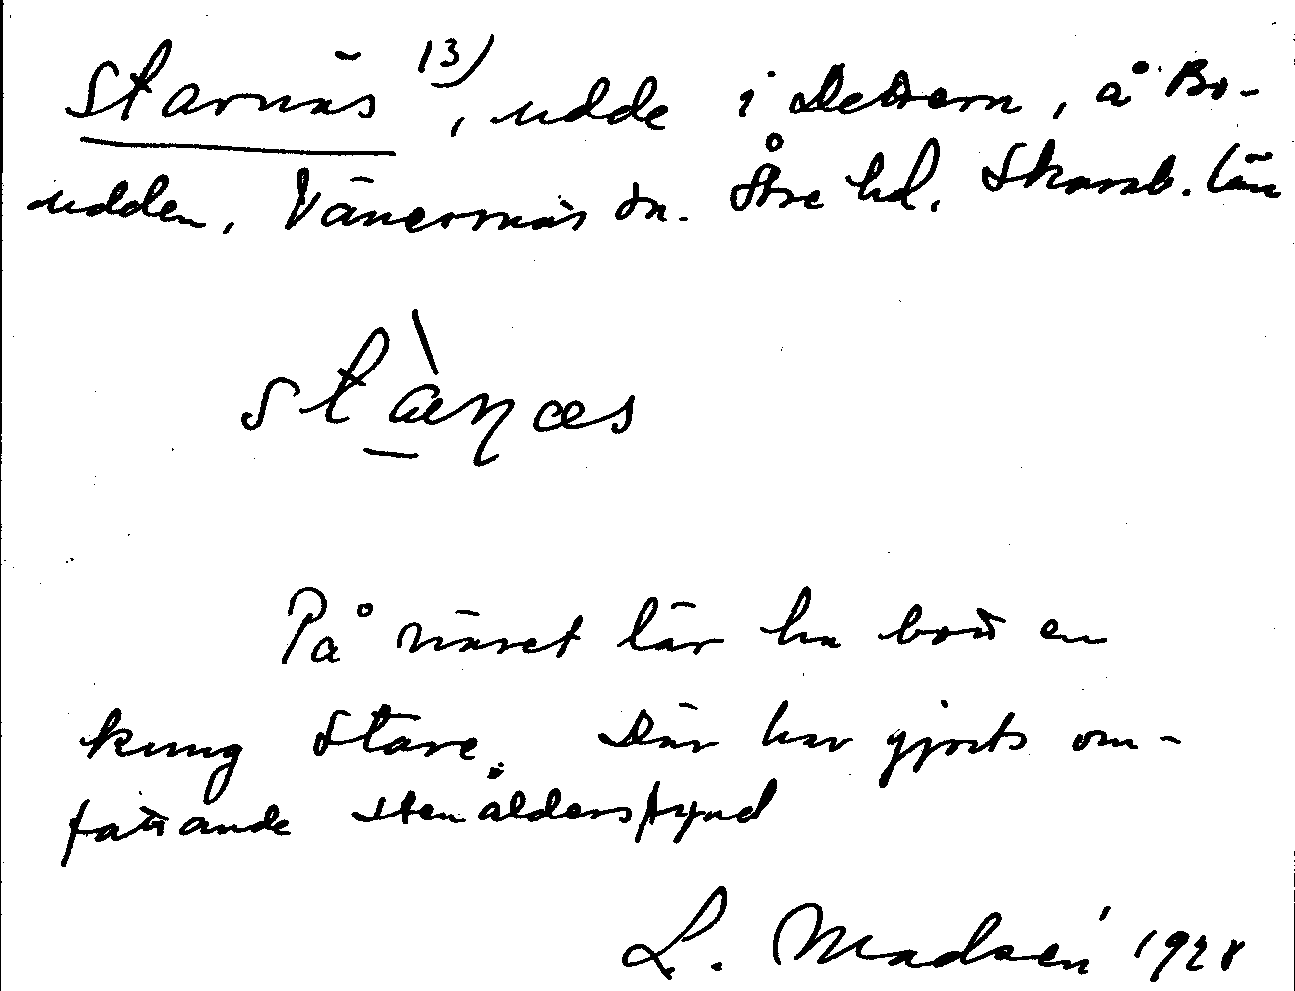 Starnäs 13), udde i Dettern, å Bo-
udden, Vänersnäs sn. Åse hd. Skarab. län
stànæs
På näset lär ha bott en
kung Stare. Där har gjorts om-
fattande stenåldersfynd
L. Madsén 1928